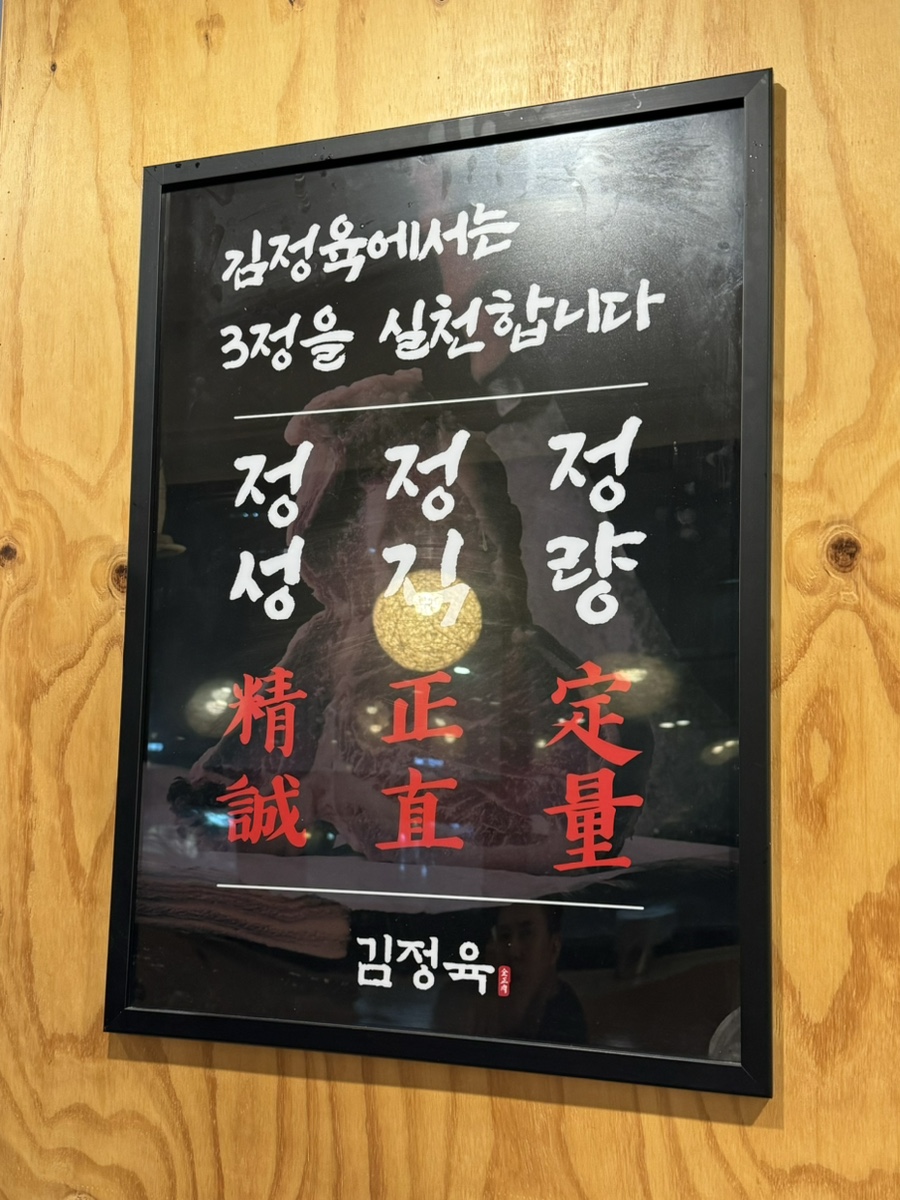 김정육에서는
3정을 실천합니다
정성 정직 정량
精誠 正直 定量
김정육
金正肉